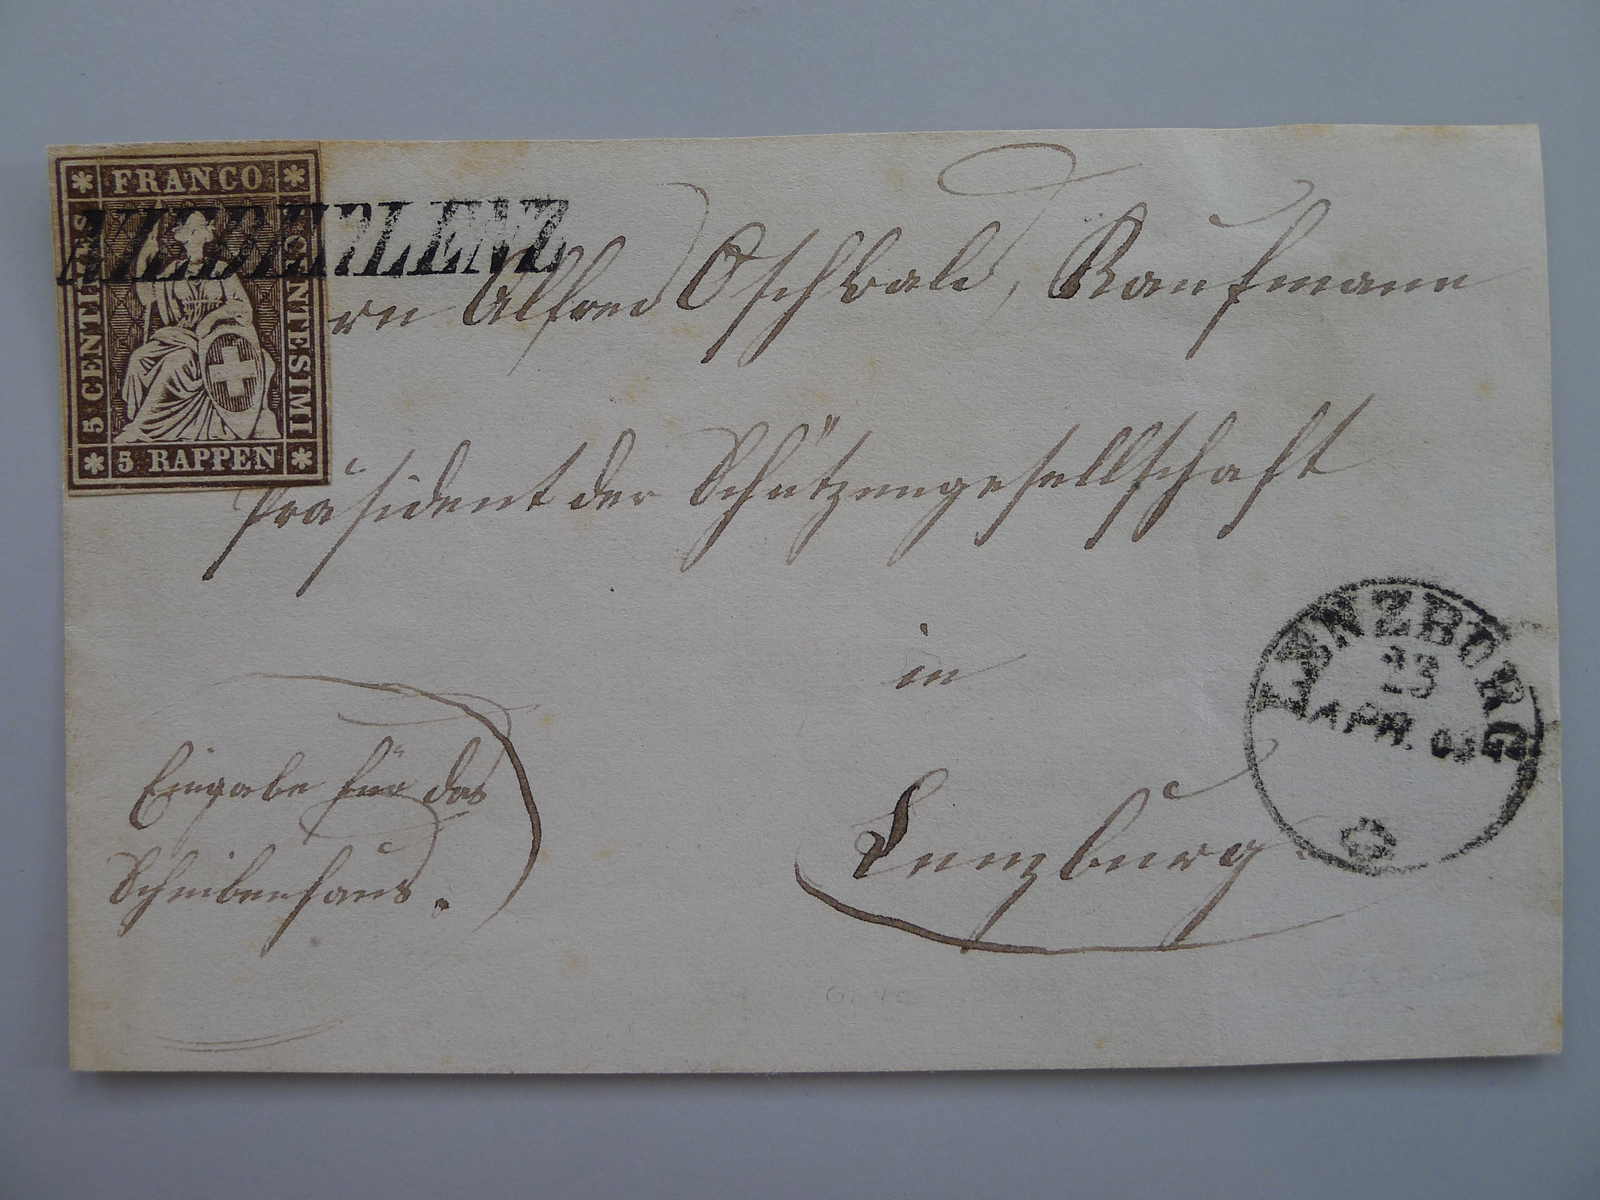 FRANCO
5 CENTIMES
CENTESIMI
5 RAPPEN
NIEDERLENZ
rn Alfred Oschwald, Kaufmann
Präsident der Schützengesellschaft
in
Lenzburg.
Eingabe für das
Scheibenhaus.
LENZBURG
23
APR.